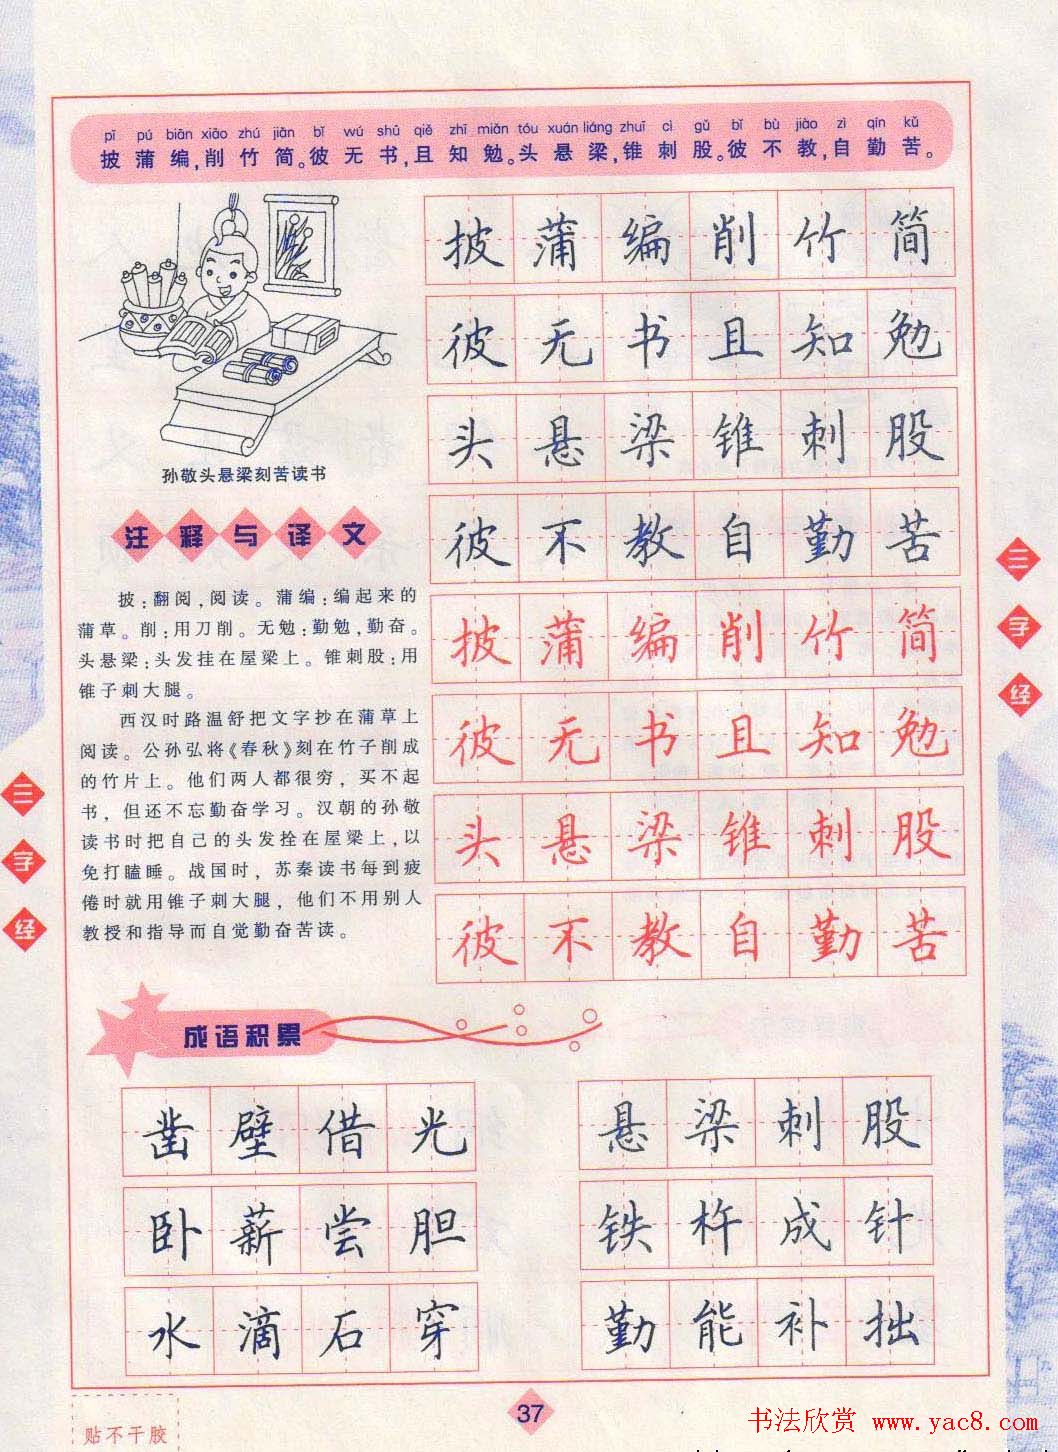 pī pú biān xiāo zhú jiǎn bǐ wú shū qiě zhī miǎn tóu xuán liáng zhuī cì gǔ bǐ bù jiào zì qín kǔ
披蒲编,削竹简。彼无书,且知勉。头悬梁,锥刺股。彼不教,自勤苦。
披蒲编削竹简
彼无书且知勉
头悬梁锥刺股
彼不教自勤苦
披蒲编削竹简
彼无书且知勉
头悬梁锥刺股
彼不教自勤苦
孙敬头悬梁刻苦读书
注释与译文
披:翻阅,阅读。蒲编:编起来的
蒲草。削:用刀削。无勉:勤勉,勤奋。
头悬梁:头发挂在屋梁上。锥刺股:用
锥子刺大腿。
西汉时路温舒把文字抄在蒲草上
阅读。公孙弘将《春秋》刻在竹子削成
的竹片上。他们两人都很穷，买不起
书，但还不忘勤奋学习。汉朝的孙敬
读书时把自己的头发拴在屋梁上,以
免打瞌睡。战国时，苏秦读书每到疲
倦时就用锥子刺大腿，他们不用别人
教授和指导而自觉勤奋苦读。
三字经
三字经
成语积累
凿壁借光
悬梁刺股
卧薪尝胆
铁杵成针
水滴石穿
勤能补拙
37
贴不干胶
书法欣赏 www.yac8.com